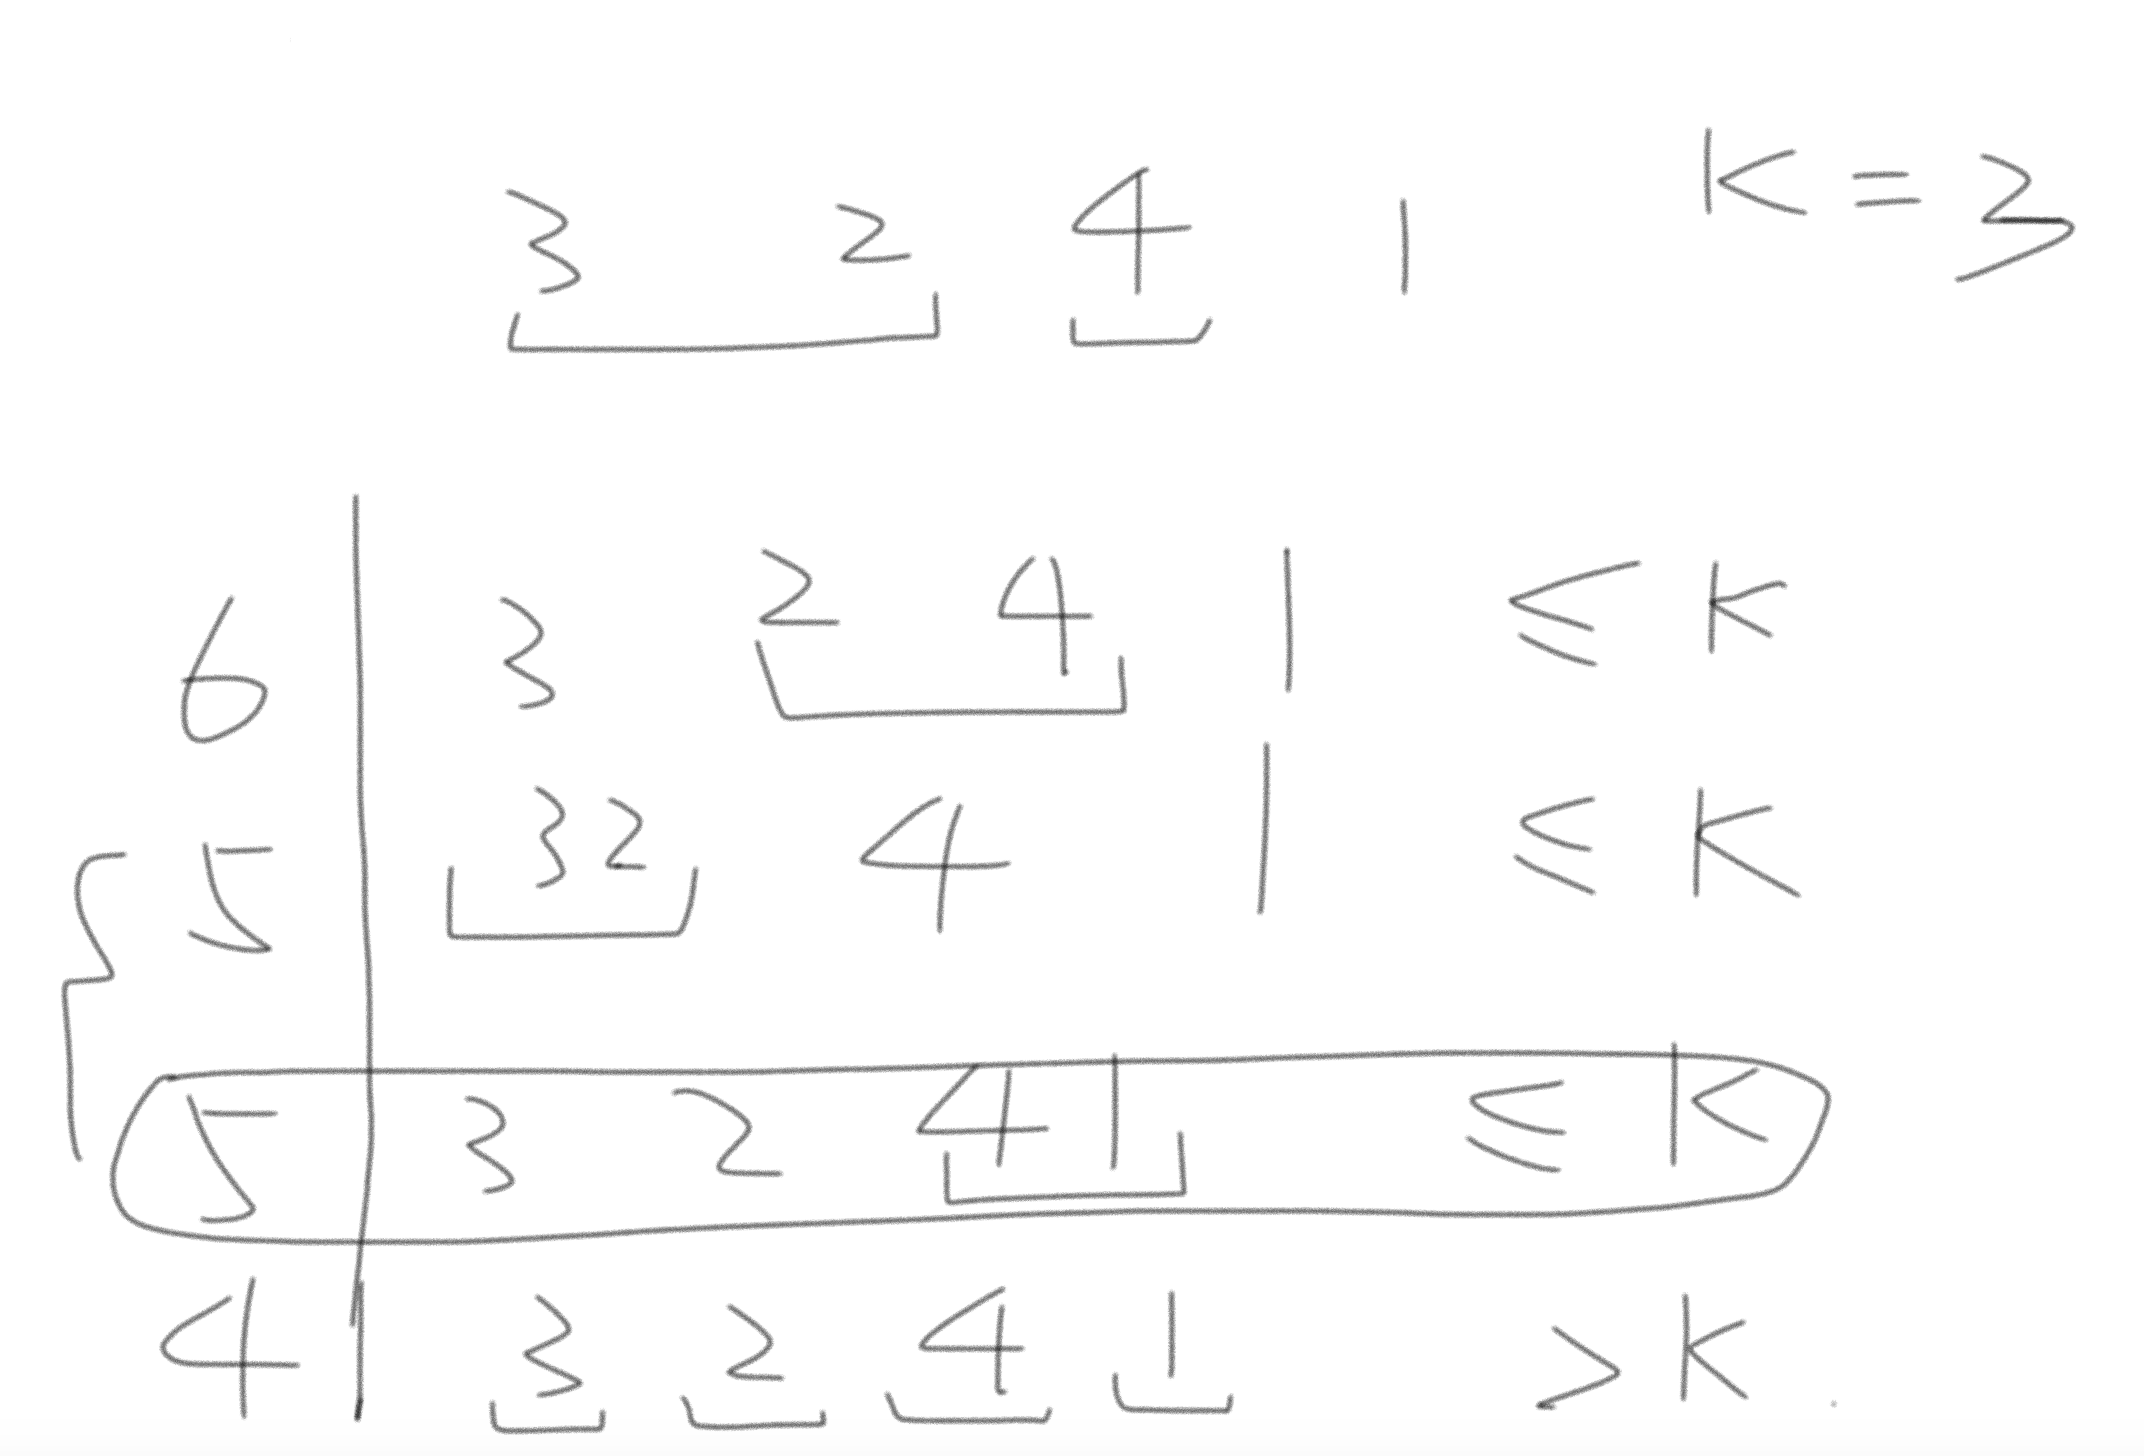 3 2 4 1 K = 3
6 3 2 4 1 ≤ K
5 32 4 1 ≤ K
5 3 2 41 ≤ K
4 3 2 4 1 > K